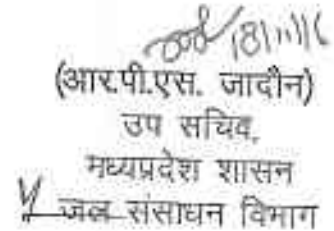 18/11/16
(आर.पी.एस. जादौन)
उप सचिव,
मध्यप्रदेश शासन
जल संसाधन विभाग